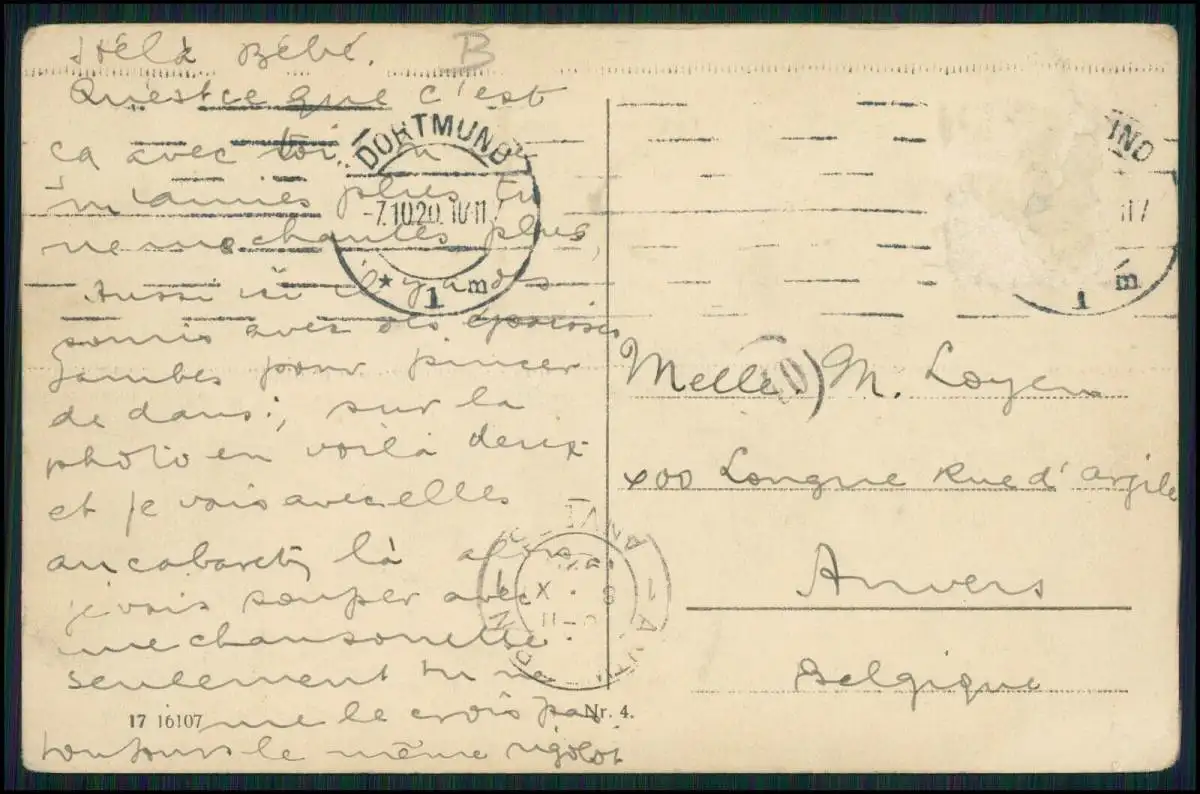 Héla Bébé. B
Qu'est ce que c'est
ça avec toi, tu
m'aimes plus tu
ne me chantes plus,
Aussi ici il y a des
souris avec des épaisses
jambes pour pincer
dedans; sur la
photo en voilà deux
et je vais avec elles
au cabaret, là alors
je vais souper avec
une chansonette.
seulement tu ne
me le crois pas
toujours le même rigolot
17 16107
Nr. 4.
DORTMUND
-7.10.20. 10-11
* 1 m
1 m
Melle. M. Loyens
400 Longue Rue d'argile
Anvers
Belgique